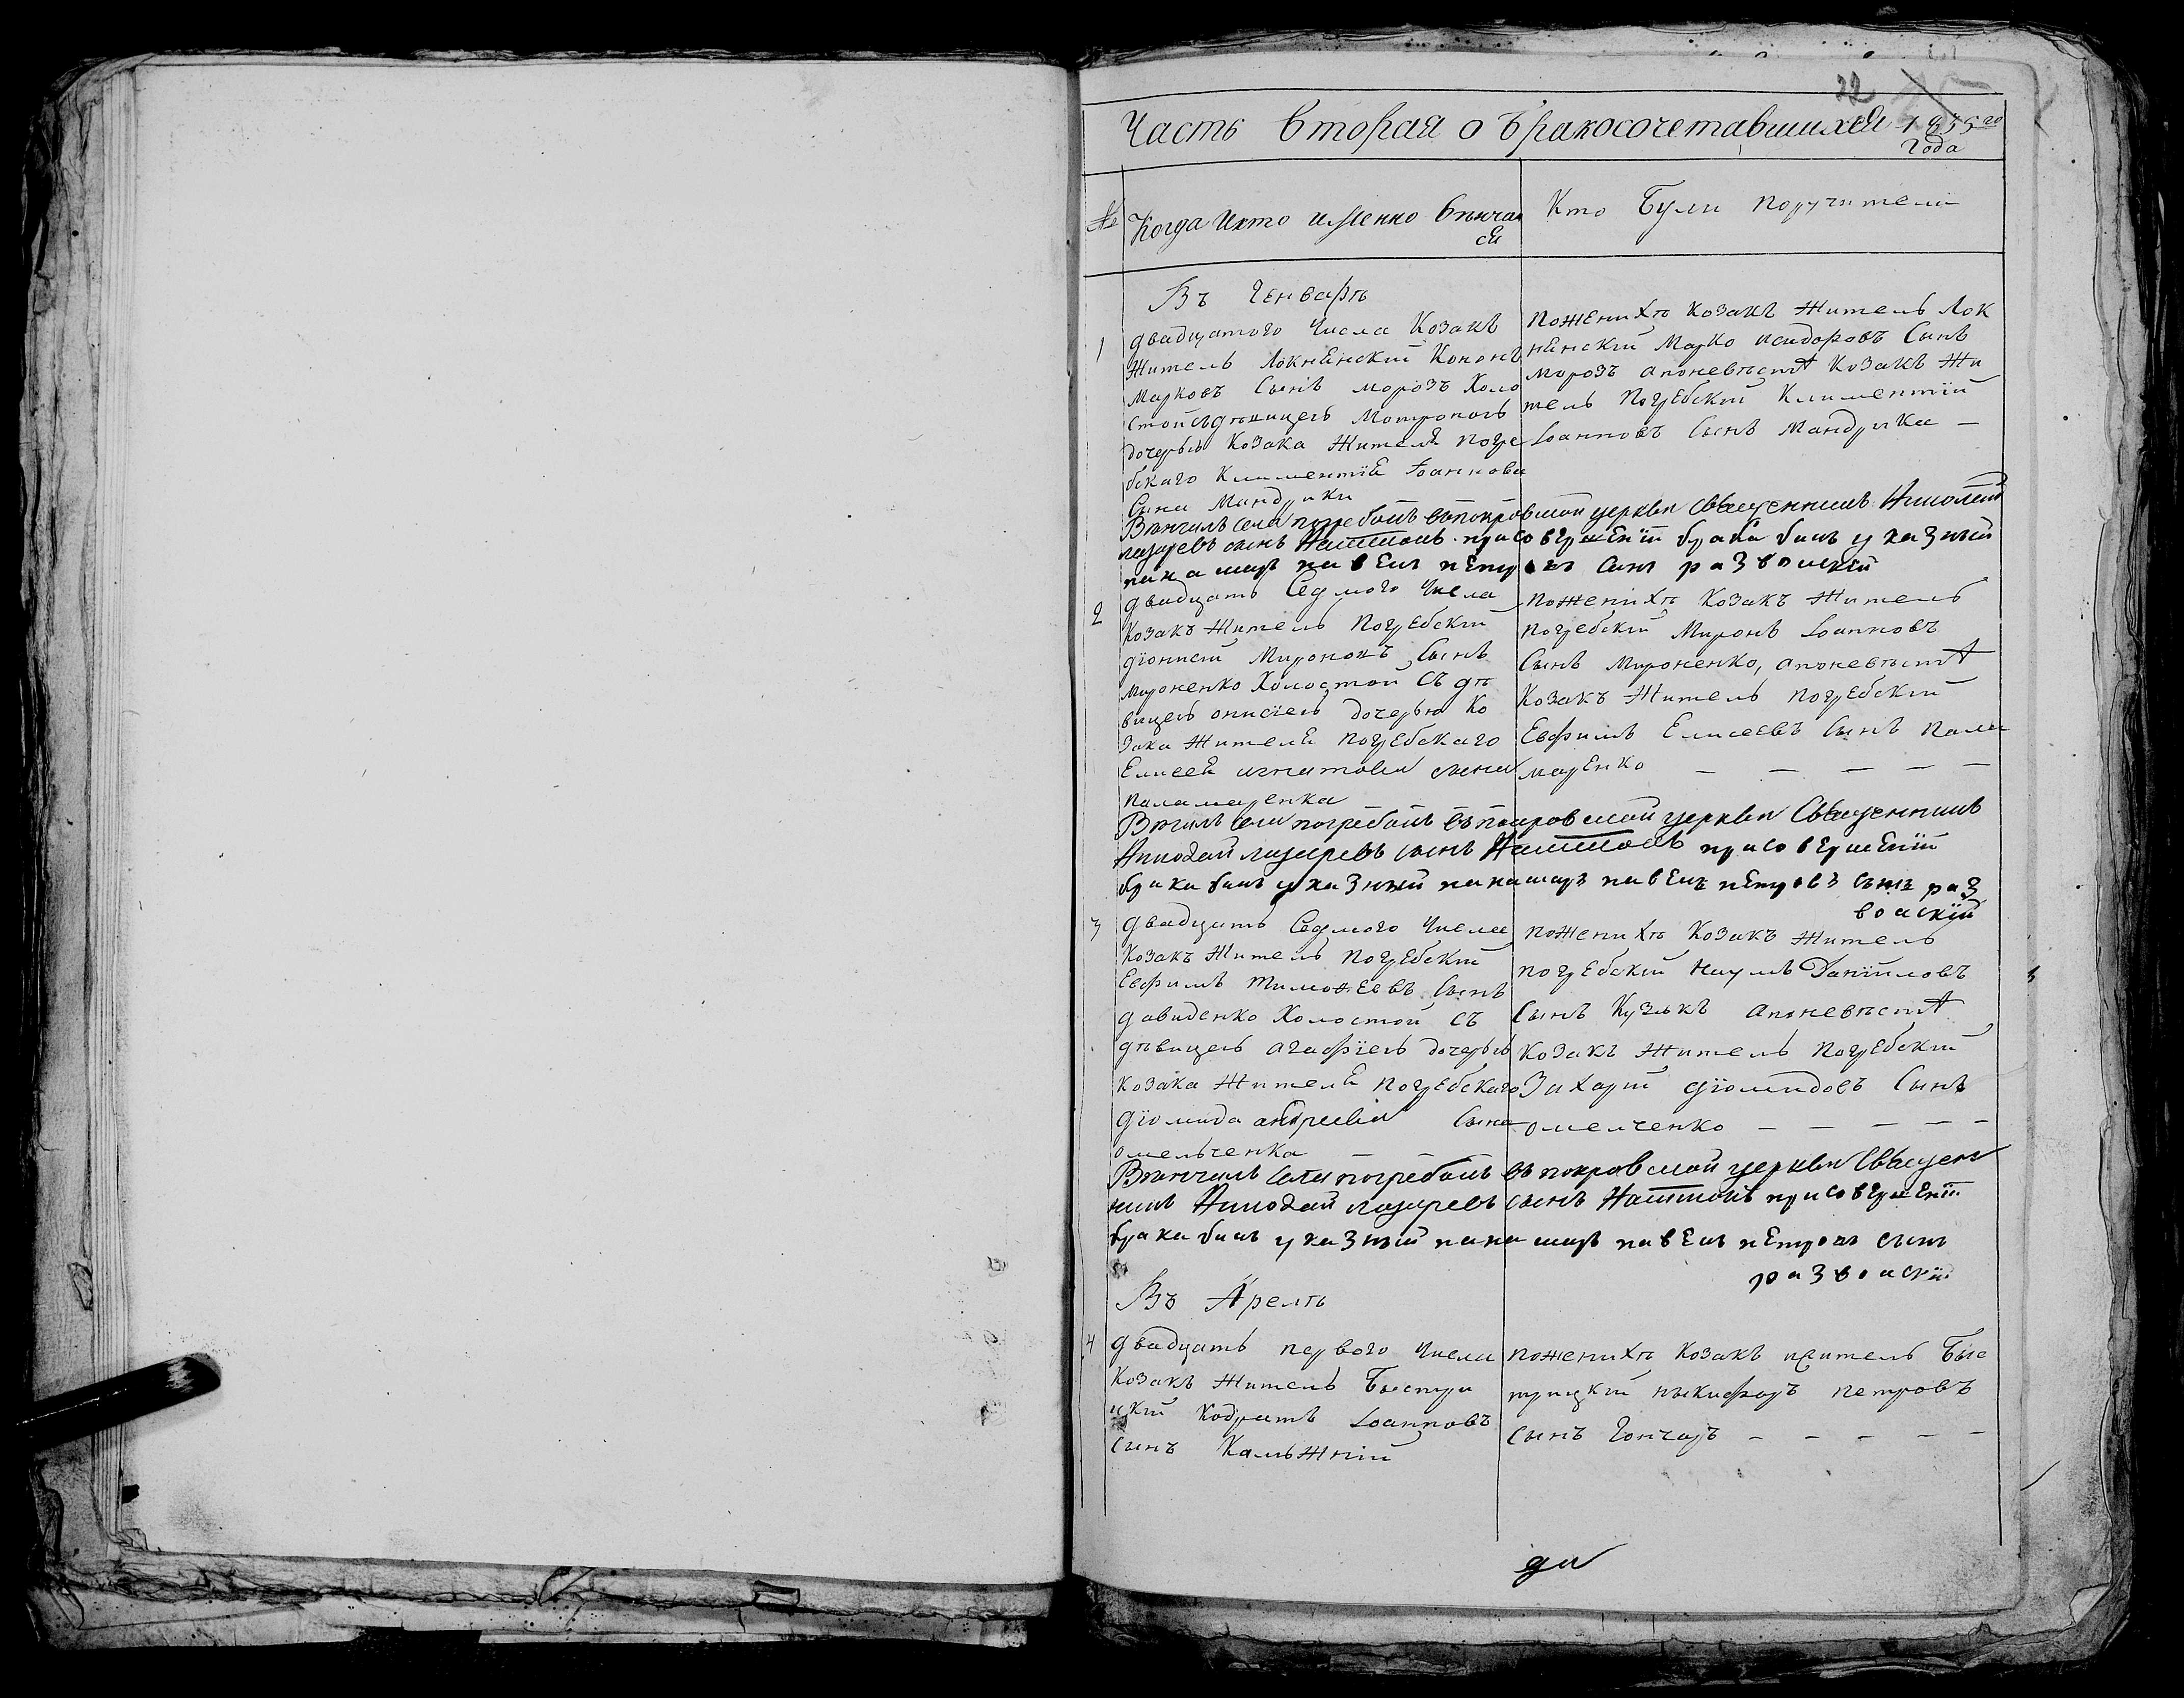 22
Часть вторая о бракосочетавшихся 1835го
года
№
Когда икто именно венчал
ся
Кто були поручители
Въ Генварѣ
1
двадцатого Числа Козакъ
Житель Локненский Кононъ
Марковъ Сынъ морозъ Холо
стой съ дѣвицею Мотроною
дочерью Козака Жителя Погре
бскаго Климентія Іоаннова
Сына Мандрики
поженихѣ козакъ Житель Лок
ненский Марко исидоровъ Сынъ
морозъ апоневѣстѣ козакъ Жи
тель Погребский Климентій
Іоанновъ Сынъ Мандрика —
Вѣнчалъ села погребовъ въ покровской церкви Священникъ Николай
лазаревъ сынъ присовершеніи брака былъ указный
панамарь павелъ петровъ Синъ
2
двадцать Седмого Числа
Козакъ Житель Погребскій
діонисій Мироновъ Сынъ
мироненко Холостой съ дѣ
вицею онисіею дочерью Ко
зака Жителя Погребскаго
Елисея игнатова сына
паламаренка
поженихѣ Козакъ Житель
погребскій Миронъ Іоанновъ
Сынъ Мироненко, апоневѣстѣ
Козакъ Житель погребскій
Евфимъ Елисеевъ Сынъ Пала
маренко — — — — —
Вѣнчалъ села погребовъ въ покровской церкви Священникъ
Николай лазаревъ сынъ присовершеніи
брака былъ указный панамарь павелъ петровъ сынъ раз
3
двадцать Седмого Числа
Козакъ Житель Погребскій
Евфимъ Тимофеевъ Сынъ
давиденко Холостой съ
дѣвицею агафіею дочерью
козака Жителя погребскаго
діомида андреева Сына
омельченка
поженихѣ Козакъ Житель
погребскій Наумъ Даніиловъ
Сынъ Кузькъ апоневѣстѣ
Козакъ Житель Погребскій
Захарій діомидовъ Сынъ
омелченко — — — — —
Вѣнчалъ села погребовъ въ покровской церкви Священ
никъ Николай лазаревъ сынъ присовершеніи
брака былъ указный панамарь павелъ петровъ сынъ
Въ Апрелѣ
4
двадцать первого Числа
Козакъ Житель Быстри
цкій Кодратъ Іоанновъ
сынъ Кальжній
поженихѣ Козакъ житель Быс
трицкій никифоръ петровъ
Сынъ Гончаръ — — — — —